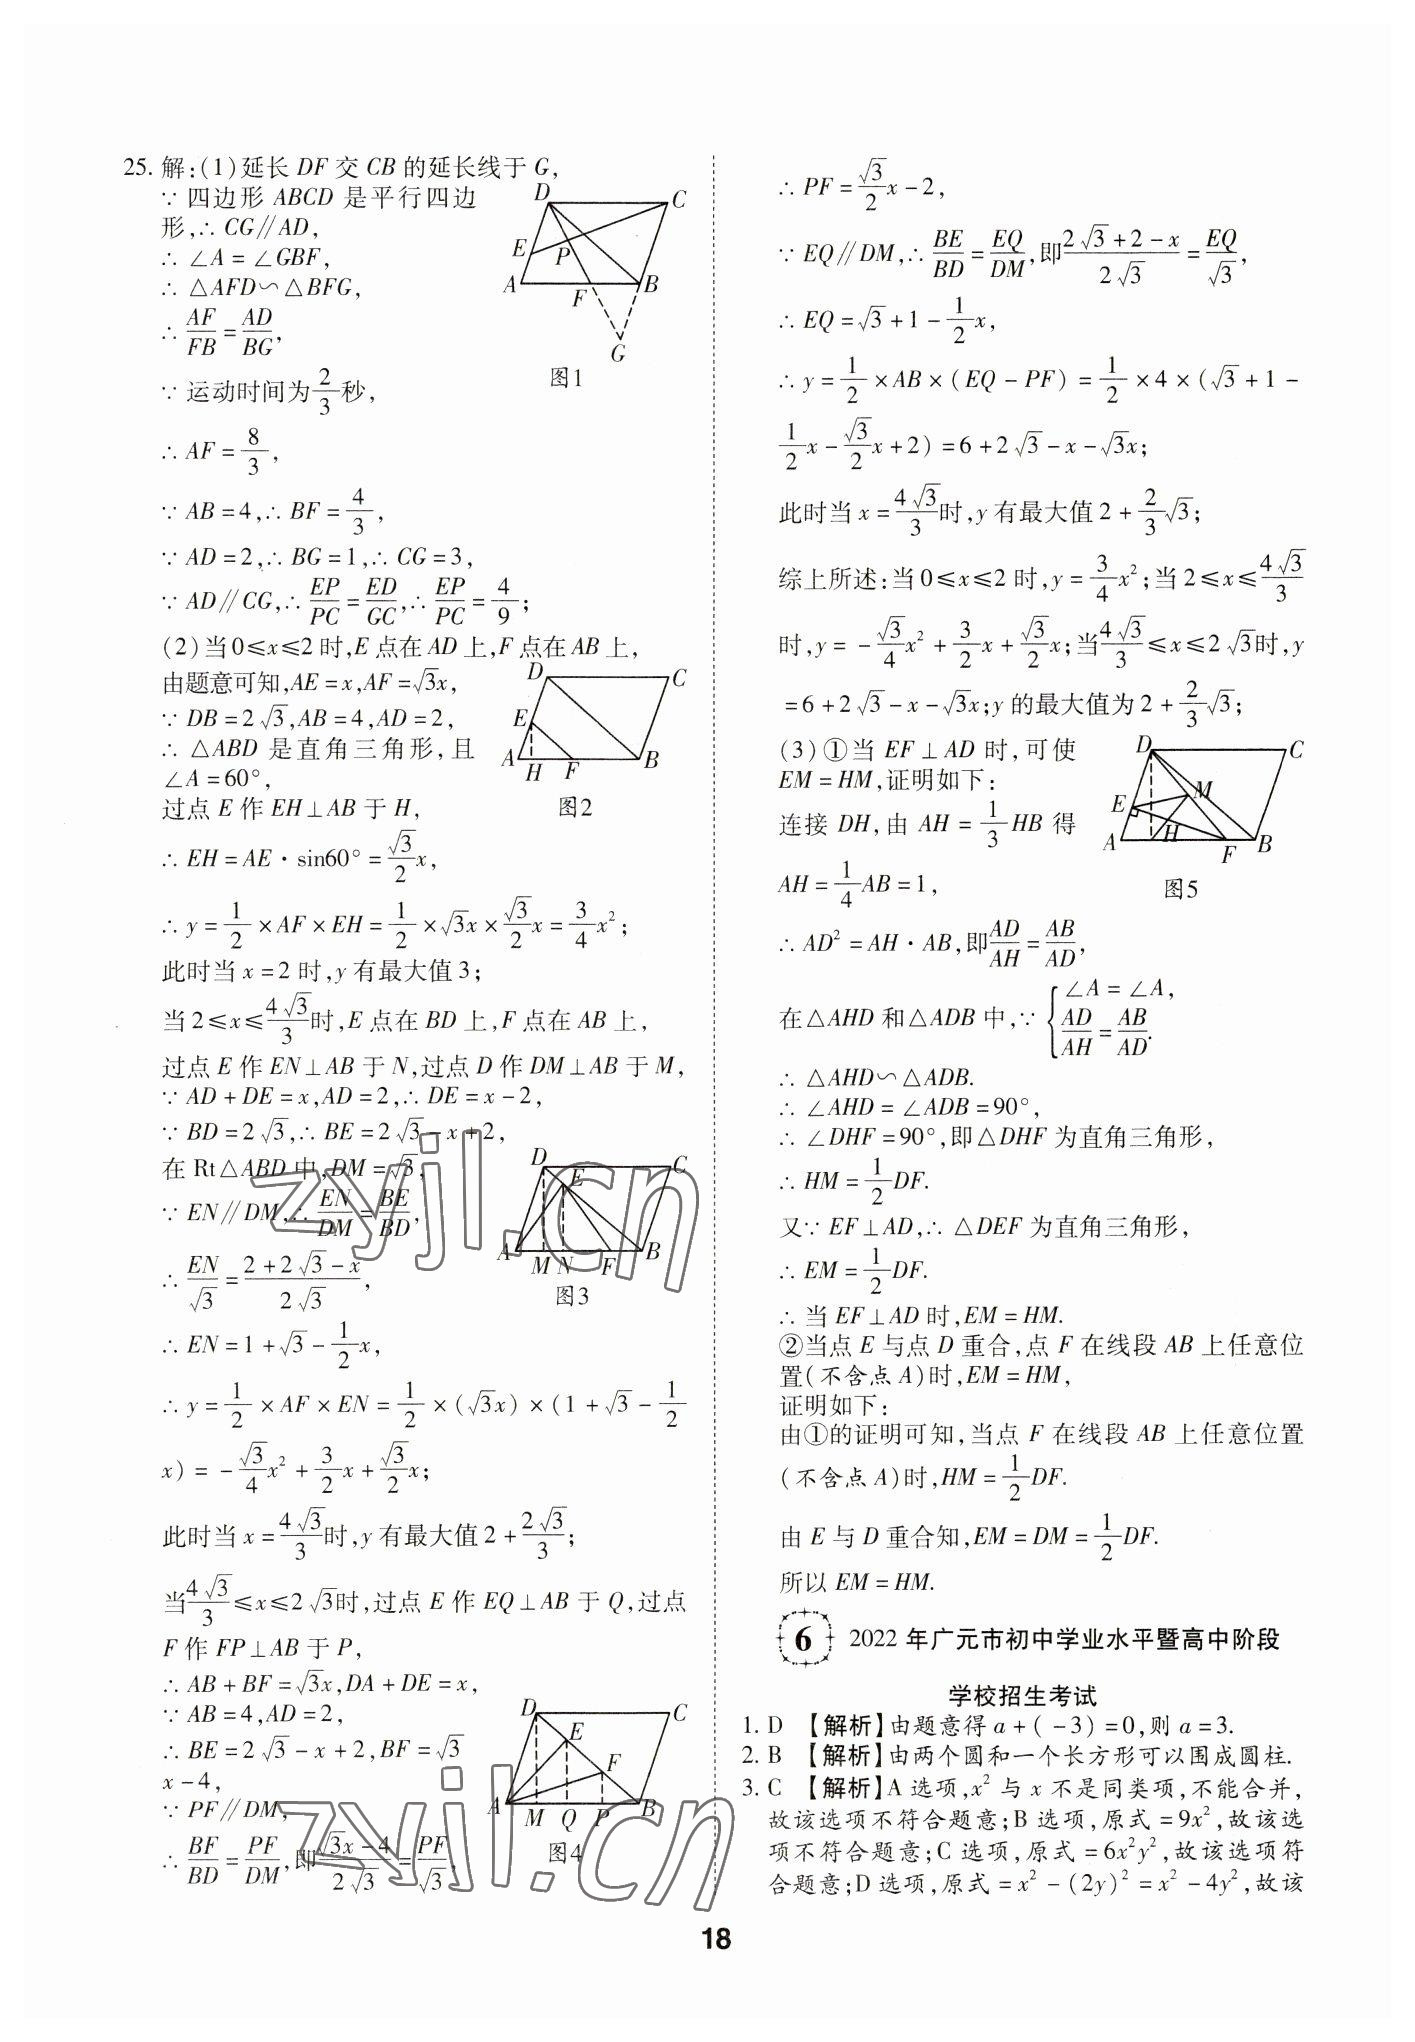 25. 解:(1)延长 DF 交 CB 的延长线于 G,
∵ 四边形 ABCD 是平行四边
形,∴ CG∥AD,
∴ ∠A = ∠GBF,
∴ △AFD∽△BFG,
∴ AF/FB = AD/BG,
∵ 运动时间为 2/3 秒,
∴ AF = 8/3,
∵ AB = 4,∴ BF = 4/3,
∵ AD = 2,∴ BG = 1,∴ CG = 3,
∵ AD∥CG,∴ EP/PC = ED/GC,∴ EP/PC = 4/9;
D C E P A F B G
图1
(2)当 0≤x≤2 时,E 点在 AD 上,F 点在 AB 上,
由题意可知,AE = x,AF = √3x,
∵ DB = 2√3,AB = 4,AD = 2,
∴ △ABD 是直角三角形,且
∠A = 60°,
过点 E 作 EH⊥AB 于 H,
D C E A H F B
图2
∴ EH = AE · sin60° = √3/2 x,
∴ y = 1/2 × AF × EH = 1/2 × √3x × √3/2 x = 3/4 x²;
此时当 x = 2 时,y 有最大值 3;
当 2≤x≤4√3/3 时,E 点在 BD 上,F 点在 AB 上,
过点 E 作 EN⊥AB 于 N,过点 D 作 DM⊥AB 于 M,
∵ AD + DE = x,AD = 2,∴ DE = x - 2,
∵ BD = 2√3,∴ BE = 2√3 - x + 2,
在 Rt△ABD 中,DM = √3,
∵ EN∥DM,∴ EN/DM = BE/BD,
∴ EN/√3 = (2 + 2√3 - x)/(2√3),
D C E A M N F B
图3
∴ EN = 1 + √3 - 1/2 x,
∴ y = 1/2 × AF × EN = 1/2 × (√3x) × (1 + √3 - 1/2
x) = - √3/4 x² + 3/2 x + √3/2 x;
此时当 x = 4√3/3 时,y 有最大值 2 + 2√3/3;
当 4√3/3 ≤x≤2√3 时,过点 E 作 EQ⊥AB 于 Q,过点
F 作 FP⊥AB 于 P,
∴ AB + BF = √3x,DA + DE = x,
∵ AB = 4,AD = 2,
∴ BE = 2√3 - x + 2,BF = √3
x - 4,
∵ PF∥DM,
∴ BF/BD = PF/DM,即 (√3x - 4)/(2√3) = PF/√3,
D C E F A M Q P B
图4
∴ PF = √3/2 x - 2,
∵ EQ∥DM,∴ BE/BD = EQ/DM,即 (2√3 + 2 - x)/(2√3) = EQ/√3,
∴ EQ = √3 + 1 - 1/2 x,
∴ y = 1/2 × AB × (EQ - PF) = 1/2 × 4 × (√3 + 1 -
1/2 x - √3/2 x + 2) = 6 + 2√3 - x - √3x;
此时当 x = 4√3/3 时,y 有最大值 2 + 2/3 √3;
综上所述:当 0≤x≤2 时,y = 3/4 x²;当 2≤x≤4√3/3
时,y = - √3/4 x² + 3/2 x + √3/2 x;当 4√3/3 ≤x≤2√3 时,y
= 6 + 2√3 - x - √3x;y 的最大值为 2 + 2/3 √3;
(3)①当 EF⊥AD 时,可使
EM = HM,证明如下:
连接 DH,由 AH = 1/3 HB 得
AH = 1/4 AB = 1,
D C E M A H F B
图5
∴ AD² = AH · AB,即 AD/AH = AB/AD,
在△AHD 和△ADB 中,∵ { ∠A = ∠A, AD/AH = AB/AD.
∴ △AHD∽△ADB.
∴ ∠AHD = ∠ADB = 90°,
∴ ∠DHF = 90°,即△DHF 为直角三角形,
∴ HM = 1/2 DF.
又∵ EF⊥AD,∴ △DEF 为直角三角形,
∴ EM = 1/2 DF.
∴ 当 EF⊥AD 时,EM = HM.
②当点 E 与点 D 重合,点 F 在线段 AB 上任意位
置(不含点 A)时,EM = HM,
证明如下:
由①的证明可知,当点 F 在线段 AB 上任意位置
(不含点 A)时,HM = 1/2 DF.
由 E 与 D 重合知,EM = DM = 1/2 DF.
所以 EM = HM.
6 2022 年广元市初中学业水平暨高中阶段
学校招生考试
1. D 【解析】由题意得 a + ( - 3) = 0,则 a = 3.
2. B 【解析】由两个圆和一个长方形可以围成圆柱.
3. C 【解析】A 选项,x² 与 x 不是同类项,不能合并,
故该选项不符合题意;B 选项,原式 = 9x²,故该选
项不符合题意;C 选项,原式 = 6x²y²,故该选项符
合题意;D 选项,原式 = x² - (2y)² = x² - 4y²,故该
18
zyjl.cn
zyjl.cn